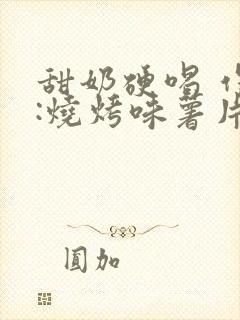 甜奶硬唱
:燒烤味薯片
圓加